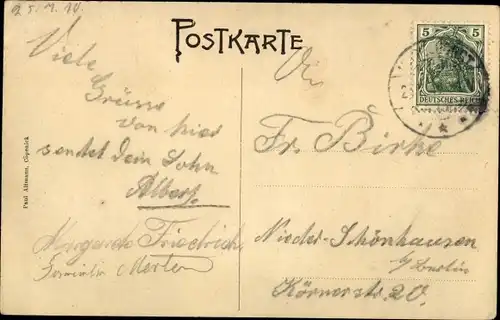 POSTKARTE
5 5
DEUTSCHES REICH
Viele
Grüsse
von hier
sendet Dein Sohn
Albert
Friedrich
Merten
Paul Altmann, Cöpenick
An
Fr. Birke
Nieder-Schönhausen
b/Berlin
Körnerstr. 20.